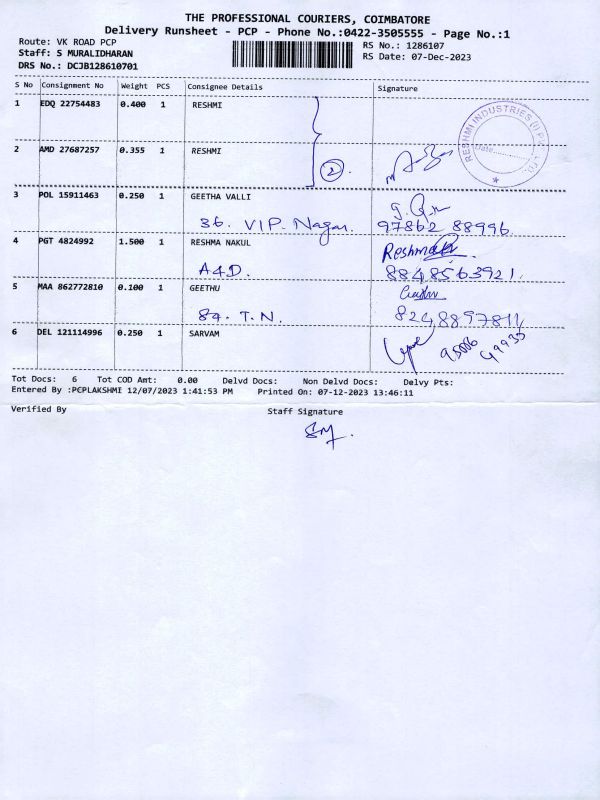 THE PROFESSIONAL COURIERS, COIMBATORE
Delivery Runsheet - PCP - Phone No.:0422-3505555 - Page No.:1
Route: VK ROAD PCP
Staff: S MURALIDHARAN
DRS No.: DCJB128610701
RS No.: 1286107
RS Date: 07-Dec-2023
S No Consignment No Weight PCS Consignee Details Signature
1 EDQ 22754483 0.400 1 RESHMI
RESHMI INDUSTRIES (I) PVT. LTD.
Date
2 AMD 27687257 0.355 1 RESHMI
2
3 POL 15911463 0.250 1 GEETHA VALLI
36. VIP. Nagar. 97862 88996
4 PGT 4824992 1.500 1 RESHMA NAKUL Reshma
A4D. 8848563921
5 MAA 862772810 0.100 1 GEETHU
84. T.N. 8248897811
6 DEL 121114996 0.250 1 SARVAM
Tot Docs: 6 Tot COD Amt: 0.00 Delvd Docs: Non Delvd Docs: Delvy Pts:
Entered By :PCPLAKSHMI 12/07/2023 1:41:53 PM Printed On: 07-12-2023 13:46:11
Verified By Staff Signature